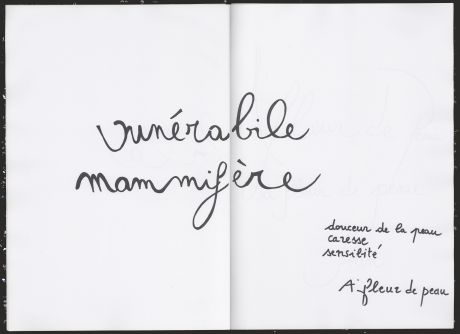 vunérabile
mammifère
douceur de la peau
caresse
sensibité
A fleur de peau